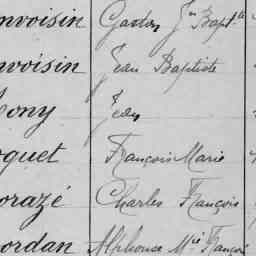 nvoisin Gaston Jn Bapte
nvoisin Jean Baptiste
ony Jean
quet François Marie
orazé Charles François
ordan Alphonse Mie François